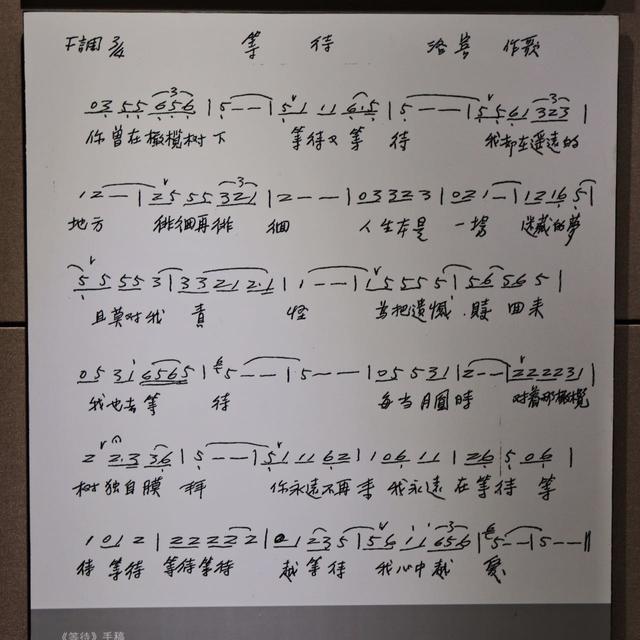 F調 3/4 等 待 洛賓 作歌
0 3 5 5 6 5 6 | 5 - - | 5 1 1 1 6·5 | 5 - - | 5 5 6 1 3 2 3 |
你曾在橄欖树下 等待又等 待 我却在遥遠的
1 2 - | 2 5 5 5 3 2 1 | 2 - - | 0 3 3 2 3 | 0 2 1 - | 1 2 1 6 5 |
地方 徘徊再徘 徊 人生本是 一場 迷藏的夢
5 5 5 5 3 | 3 3 2 1 2·1 | 1 - - | 1 5 5 5 5 | 5 6 5 6 5 |
且莫对我 責 怪 為把遺憾 贖 回来
0 5 3 1 6 5 6 5 | 5 - - | 5 - - | 0 5 5 3 1 | 2 - - | 2 2 2 2 3 1 |
我也去等 待 每当月圓時 对着那橄欖
2 2·3 3 6 | 5 - - | 5 1 1 1 6 2 | 1 0 6 1 1 | 2 6 5 0 6 |
树独自膜 拜 你永遠不再来 我永遠在等待 等
1 0 1 2 | 2 2 2 2 2 | 0 1 2 3 5 | 5 6 1 1 6 5 6 | 5 - - | 5 - - ||
待 等待 等待等待 越等待 我心中越 愛
《等待》手稿